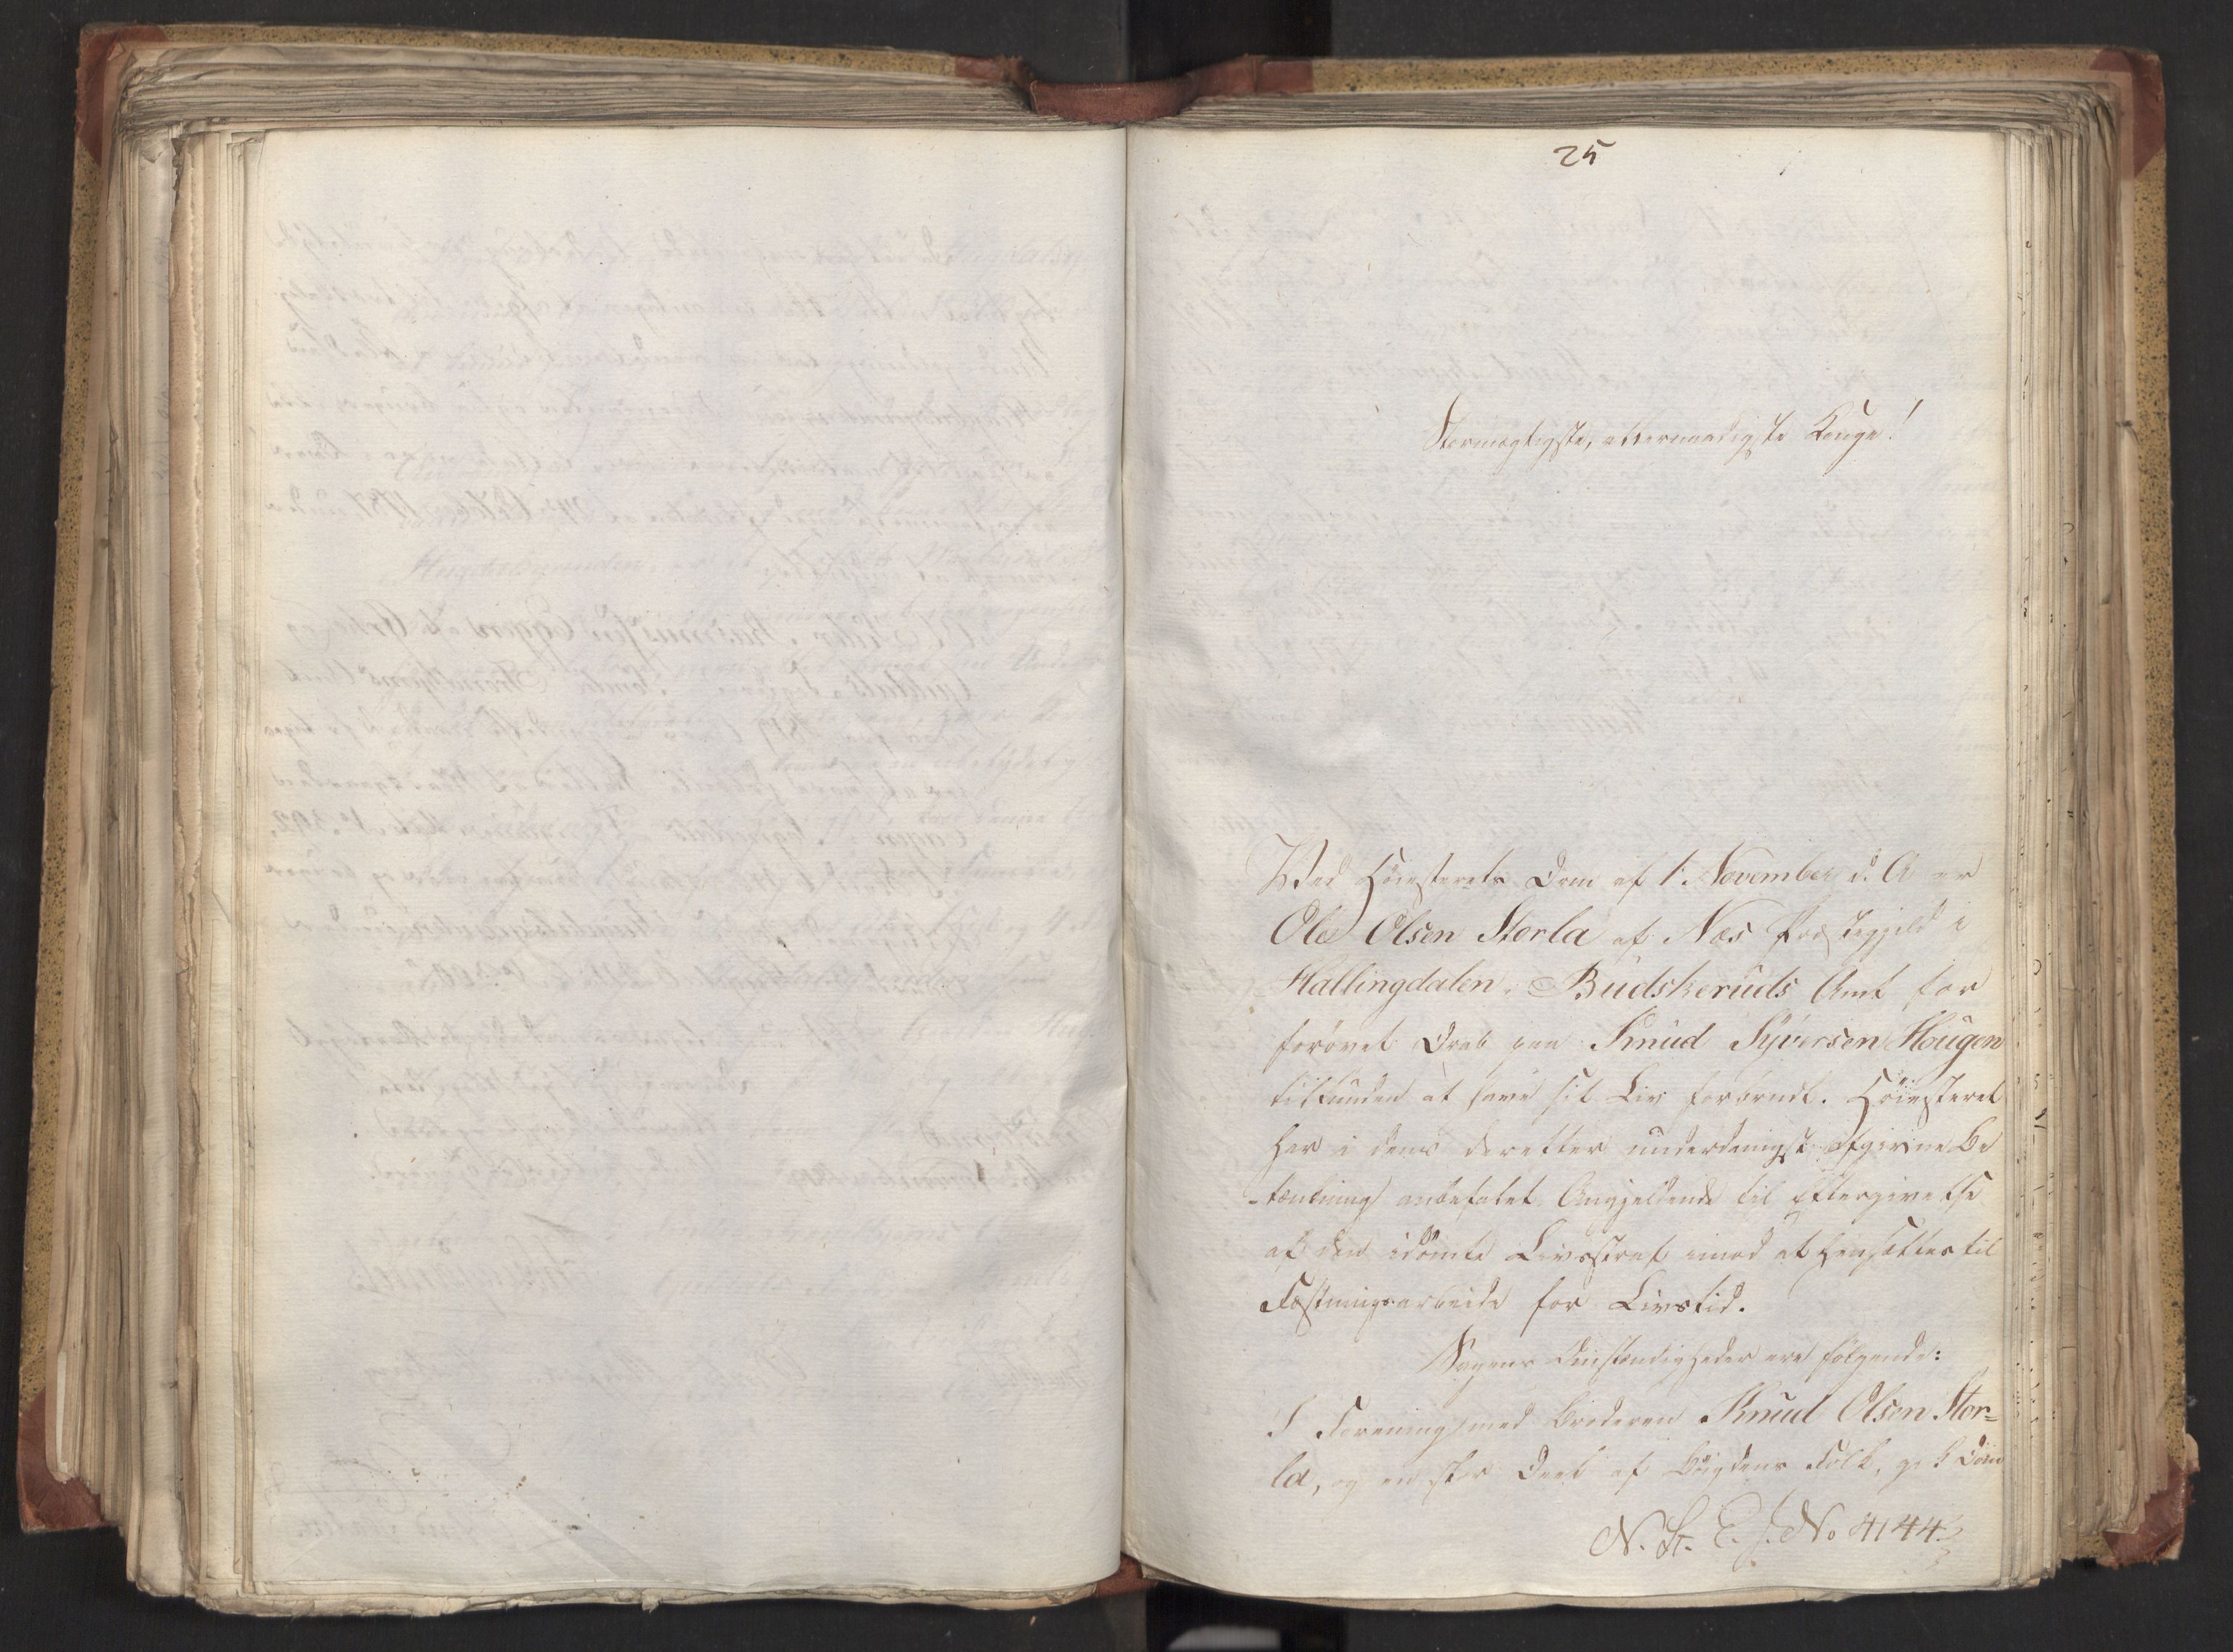 25
Stormægtigste, allernaadigste Konge!
Ved Höiesterets Dom af 1. November d. A er
Ole Olsen Storla af Næs Præstegjeld i
Hallingdalen, Budskeruds Amt for
forövet Drab paa Knud Syversen Hougen
tilfunden at have sit Liv forbrudt. Höiesteret
har i dens derefter underdanigst afgivne Be
-tænkning anbefalet Angjeldende til Eftergivelse
af den idömte Livsstraf imod at hensættes til
Fæstningsarbeide for Livstid.
Sagens Omstændigheder ere fölgende:
I Forening med Broderen Knud Olsen Stor=
la, og en stor Deel af Bygdens Folk, gik Dom
N. St. E. J. No 4144.